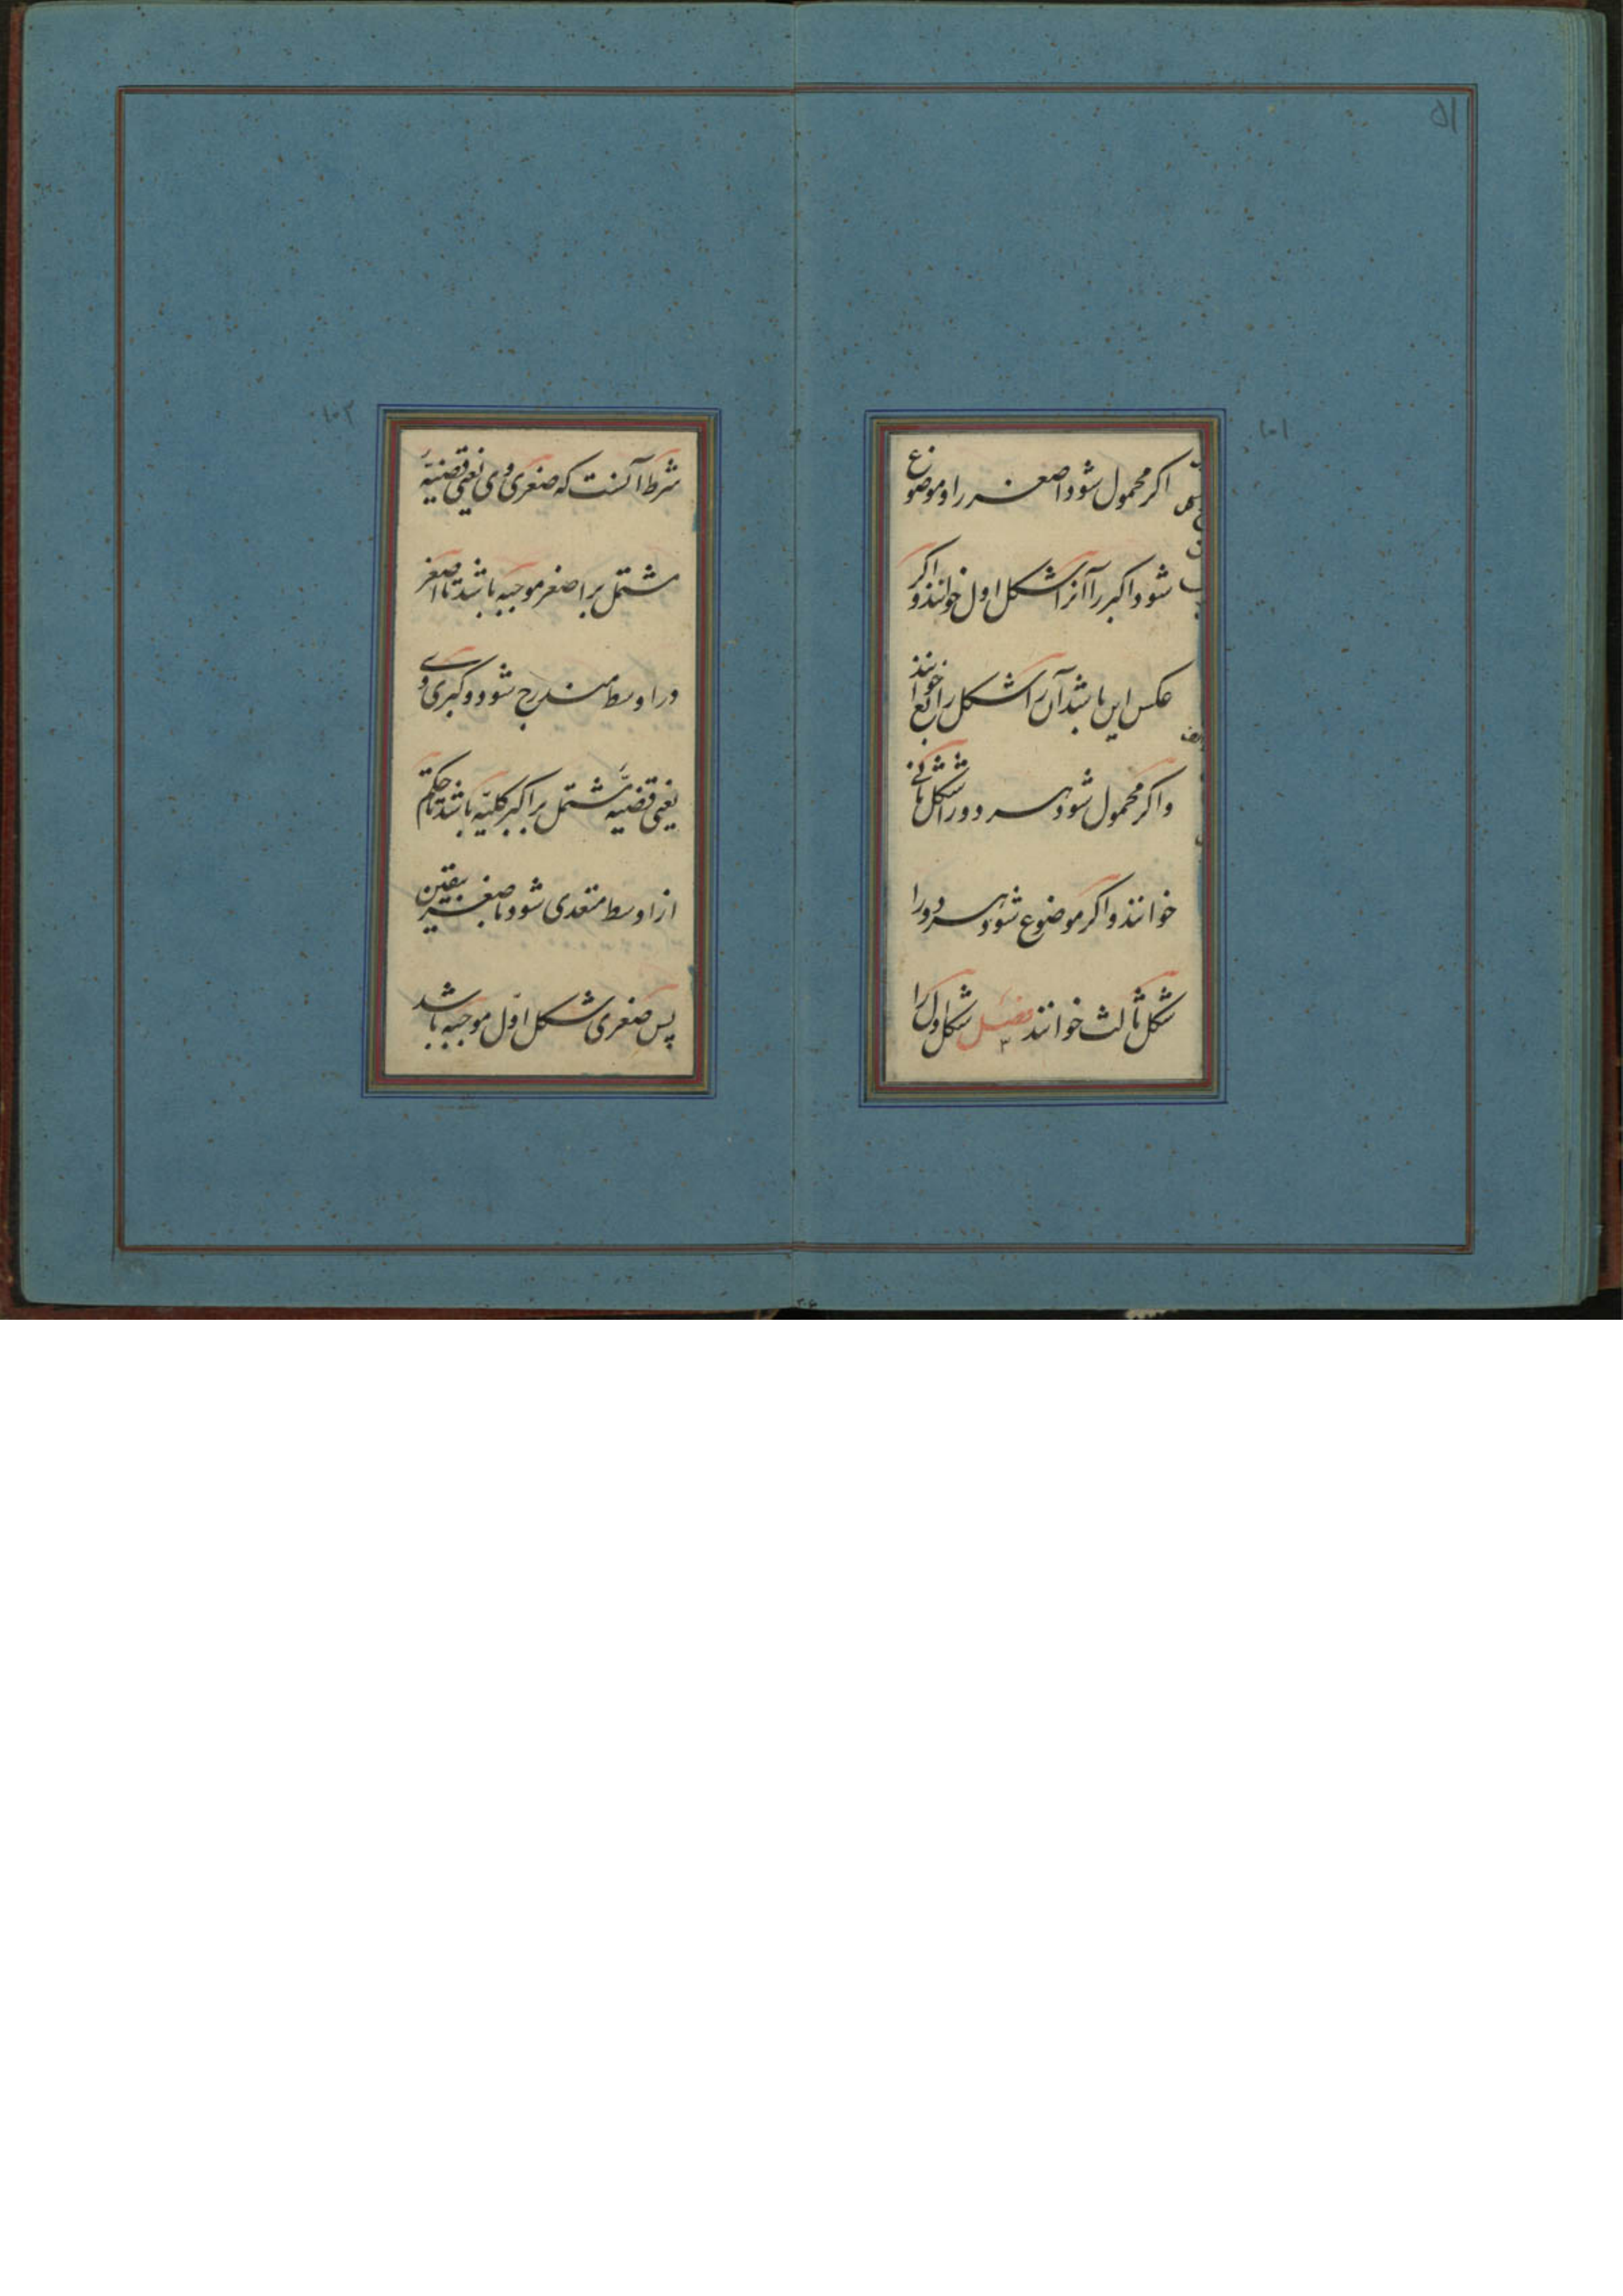 ۵۱
۱۰۱
اکر محمول شود اصغر را و موضوع
شود اکبر را آنرا شکل اول خوانند و اکر
عکس این باشد آن را شکل رابع خوانند
و اکر محمول شود هر دو را شکل ثانی
خوانند و اکر موضوع شود هر دو را
شکل ثالث خوانند فصل شکل اول را
۱۰۲
شرط آنست که صغری وی یعنی قضیهٔ
مشتمل بر اصغر موجبه باشد تا اصغر
در اوسط مندرج شود و کبری وی
یعنی قضیهٔ مشتمل بر اکبر کلیه باشد تا حکم
از اوسط متعدی شود باصغر بیقین
پس صغری شکل اول موجبه باشد